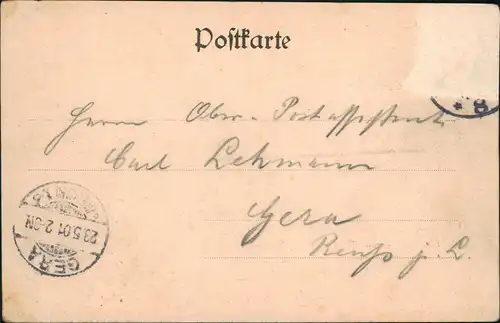 Postkarte
* 8
Herrn Ober-Postassistent
Carl Lehmann
Gera
Reuß j. L.
23.5.01 2-3N
GERA